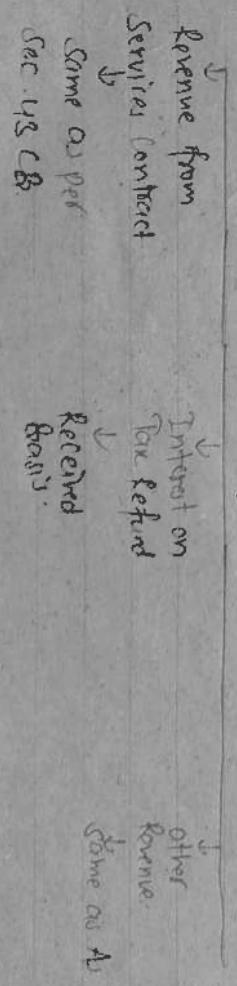 ↓
Revenue from
Services Contract
↓
Same as per
Sec. 43 CB
↓
Interest on
Tax Refund
↓
Received
Basis.
↓
Other
Revenue.
↓
Same as